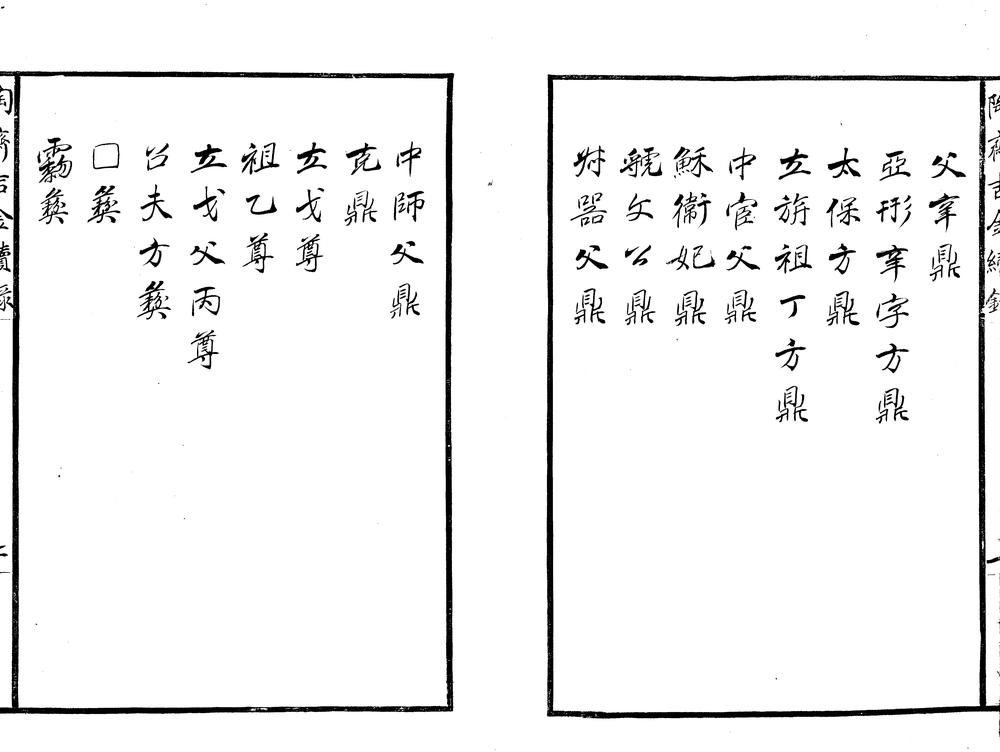 陶齋吉金續錄
父辛鼎
亞形辛字方鼎
太保方鼎
立旂祖丁方鼎
中宦父鼎
虢文公鼎
穌衛妃鼎
器父鼎
中師父鼎
克鼎
立戈尊
祖乙尊
立戈父丙尊
夫方彝
□彝
彝
陶齋吉金續錄